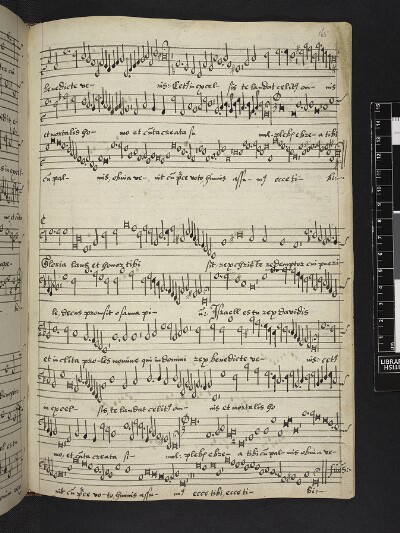 benedicte ve- nis: Cetus in excel- sis te laudat celitus om- nis
et mortalis ho- mo et cuncta creata si- mul. plebs hebre- a tibi
cum pal- mis obvia ve- nit cum prece voto hymnis assu- mus ecce ti- bi.
Gloria laus et honor tibi sit rex christe redemptor cui pueri-
le decus prompsit osanna pi- um: Israel es tu rex davidis
et inclita pro-les nomine qui in domini rex benedicte ve- nis: cetus
in excel- sis te laudat celitus om- nis et mortalis ho
mo, et cuncta creata si- mul. plebs hebre- a tibi cum pal-mis obvia ve-
nit cum prece vo-to, hymnis assu- mus ecce tibi, ecce ti- bi:-
LIBRARY